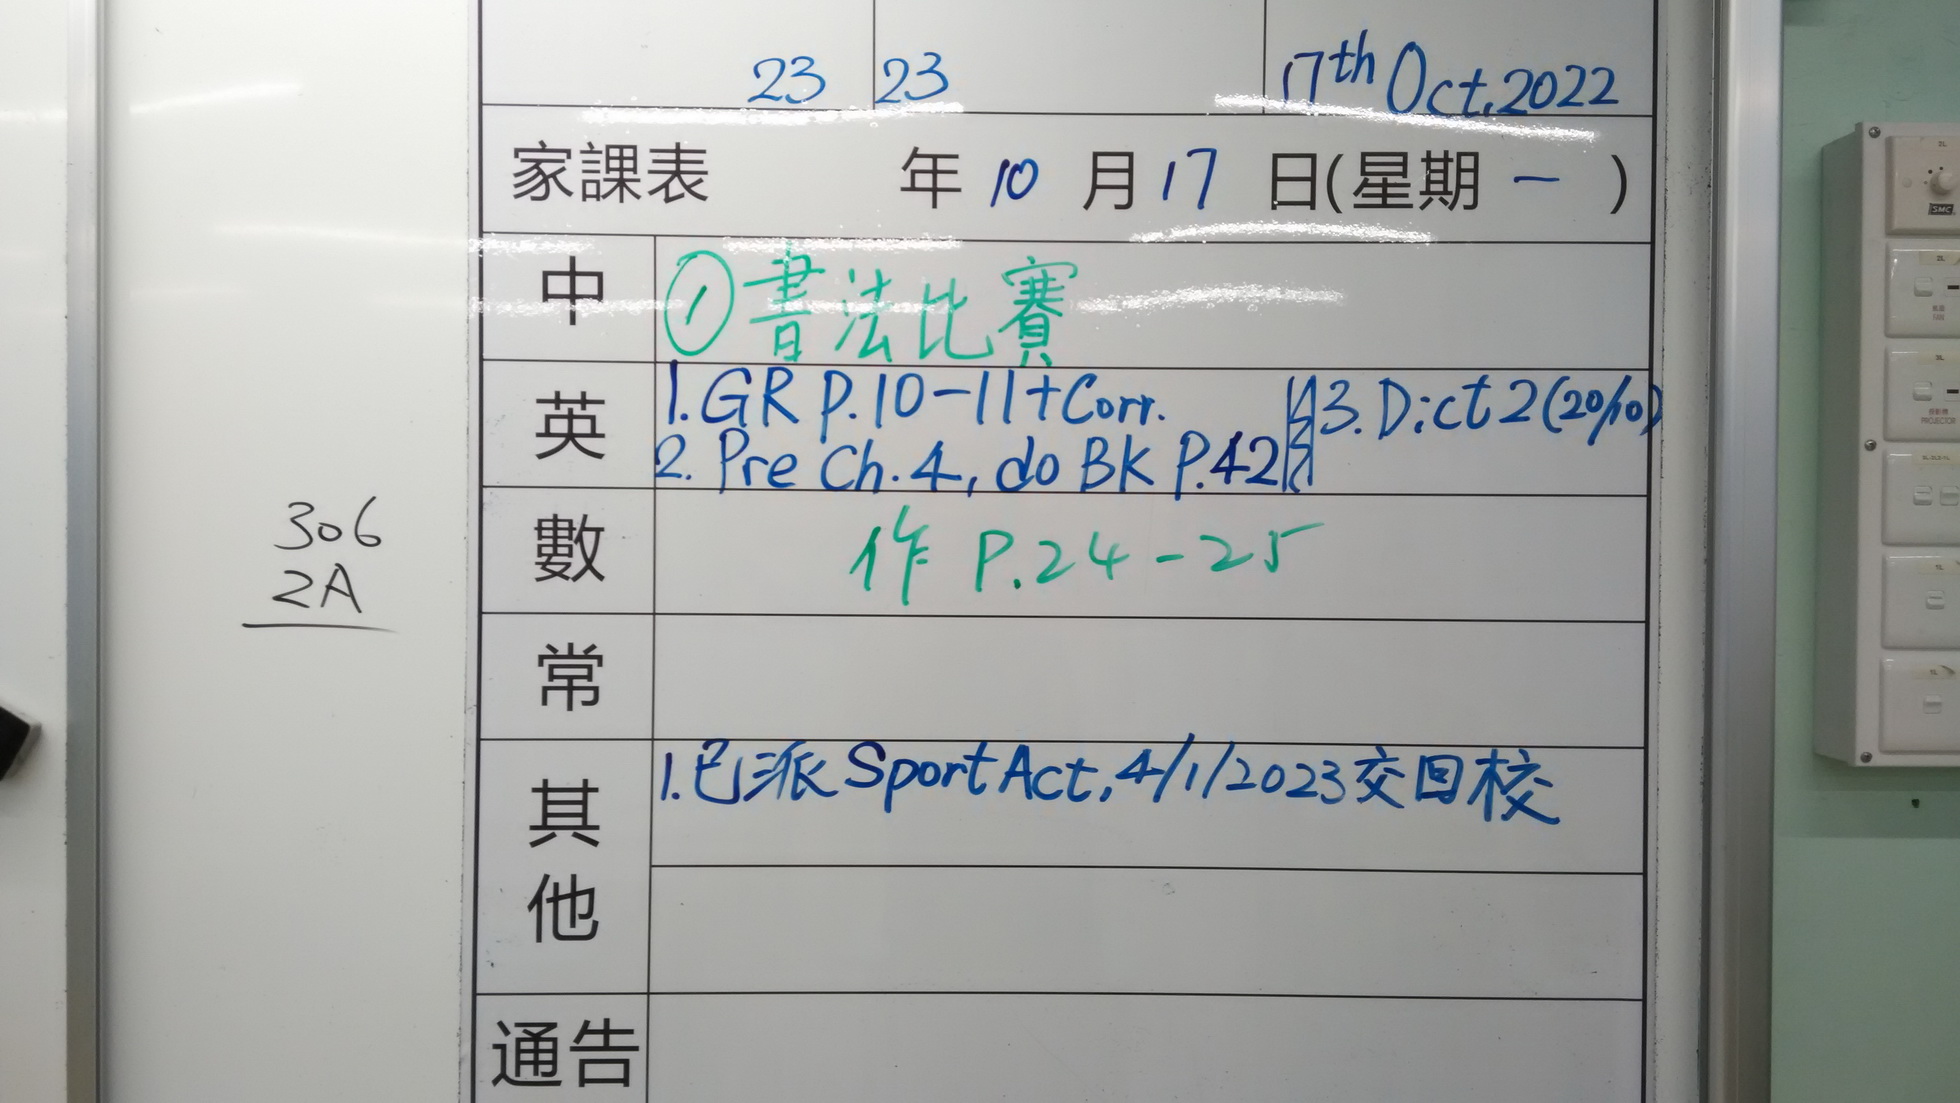 23 23 17th Oct, 2022
家課表 年 10 月 17 日(星期 一 )
中 ①書法比賽
英 1. GR P.10-11+Corr. 3. Dict 2 (20/10)
2. Pre Ch.4, do BK P.42
數 作 P.24-25
306
2A
常
其他 1.已派 Sport Act, 4/1/2023交回校
通告
SMC
PROJECTOR